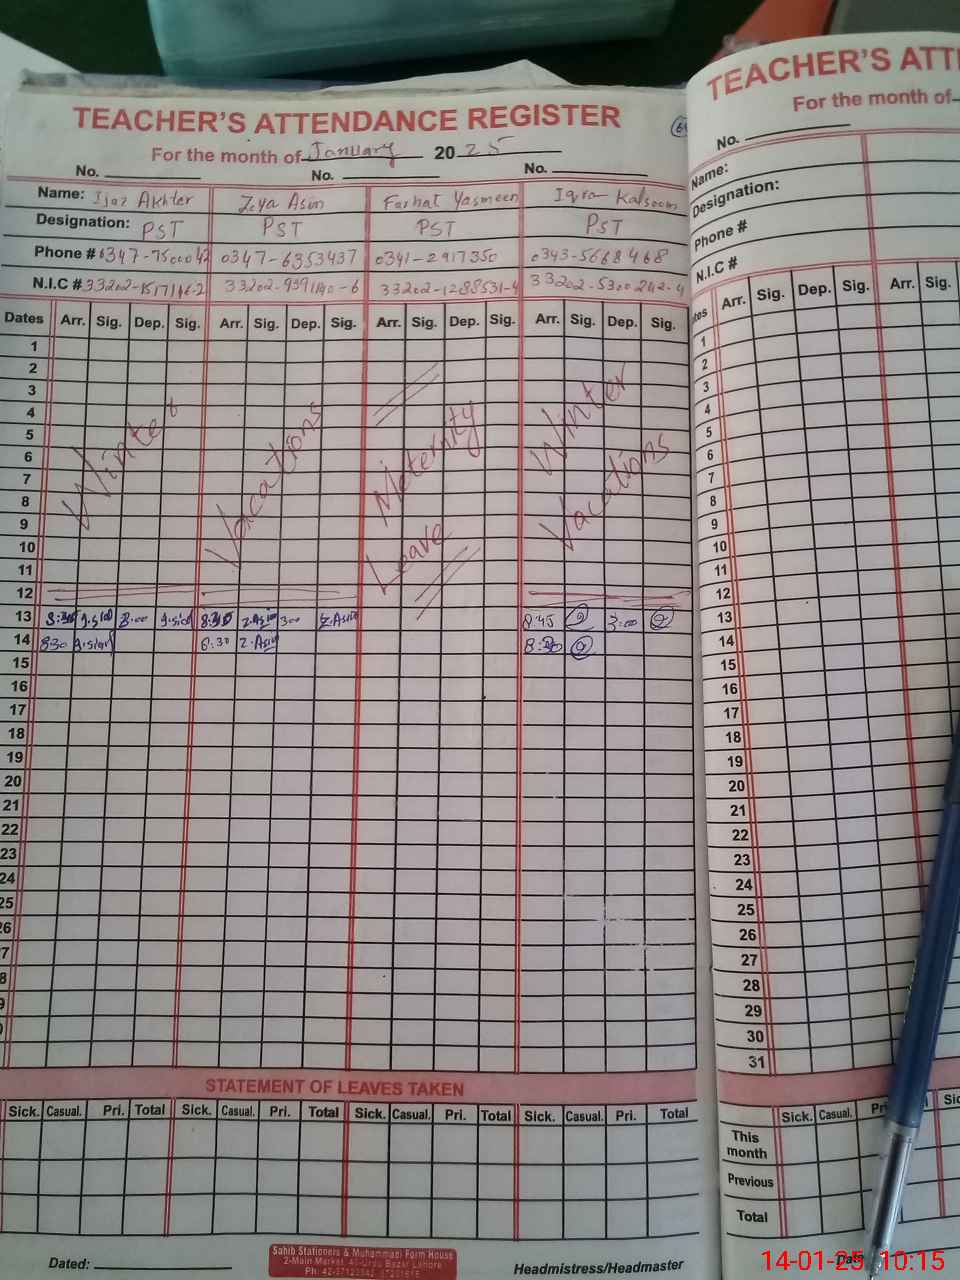 TEACHER'S ATTENDANCE REGISTER
For the month of January 2025
No. No. No.
Name: Ijaz Akhter Zoya Asim Farhat Yasmeen Iqra Kalsoom
Designation: PST PST PST PST
Phone # 0347-7500042 0347-6353437 0341-2917350 0343-5668468
N.I.C # 33202-1288531-4 33202-5300242-4
Dates Arr. Sig. Dep. Sig. Arr. Sig. Dep. Sig. Arr. Sig. Dep. Sig. Arr. Sig. Dep. Sig.
1
2
3
4
5
6
7
8
9
10
11
12
Winter Vacations Meternity Leave Winter Vacations
13 Z.Asim 300 Z.Asim 8:45 3:00
14 830 8:30 Z.Asim
15
16
17
18
19
20
21
22
23
24
25
26
27
28
STATEMENT OF LEAVES TAKEN
Sick. Casual. Pri. Total Sick. Casual. Pri. Total Sick. Casual. Pri. Total Sick. Casual. Pri. Total
Dated:
Sahib Stationers & Muhammadi Form House
2-Main Market, Urdu Bazar Lahore
Headmistress/Headmaster
TEACHER'S ATT
For the month of
No.
Name:
Designation:
Phone #
N.I.C #
Arr. Sig. Dep. Sig. Arr. Sig.
1
2
3
4
5
6
7
8
9
10
11
12
13
14
15
16
17
18
19
20
21
22
23
24
25
26
27
28
29
30
31
Sick. Casual.
This month
Previous
Total
14-01-25 10:15